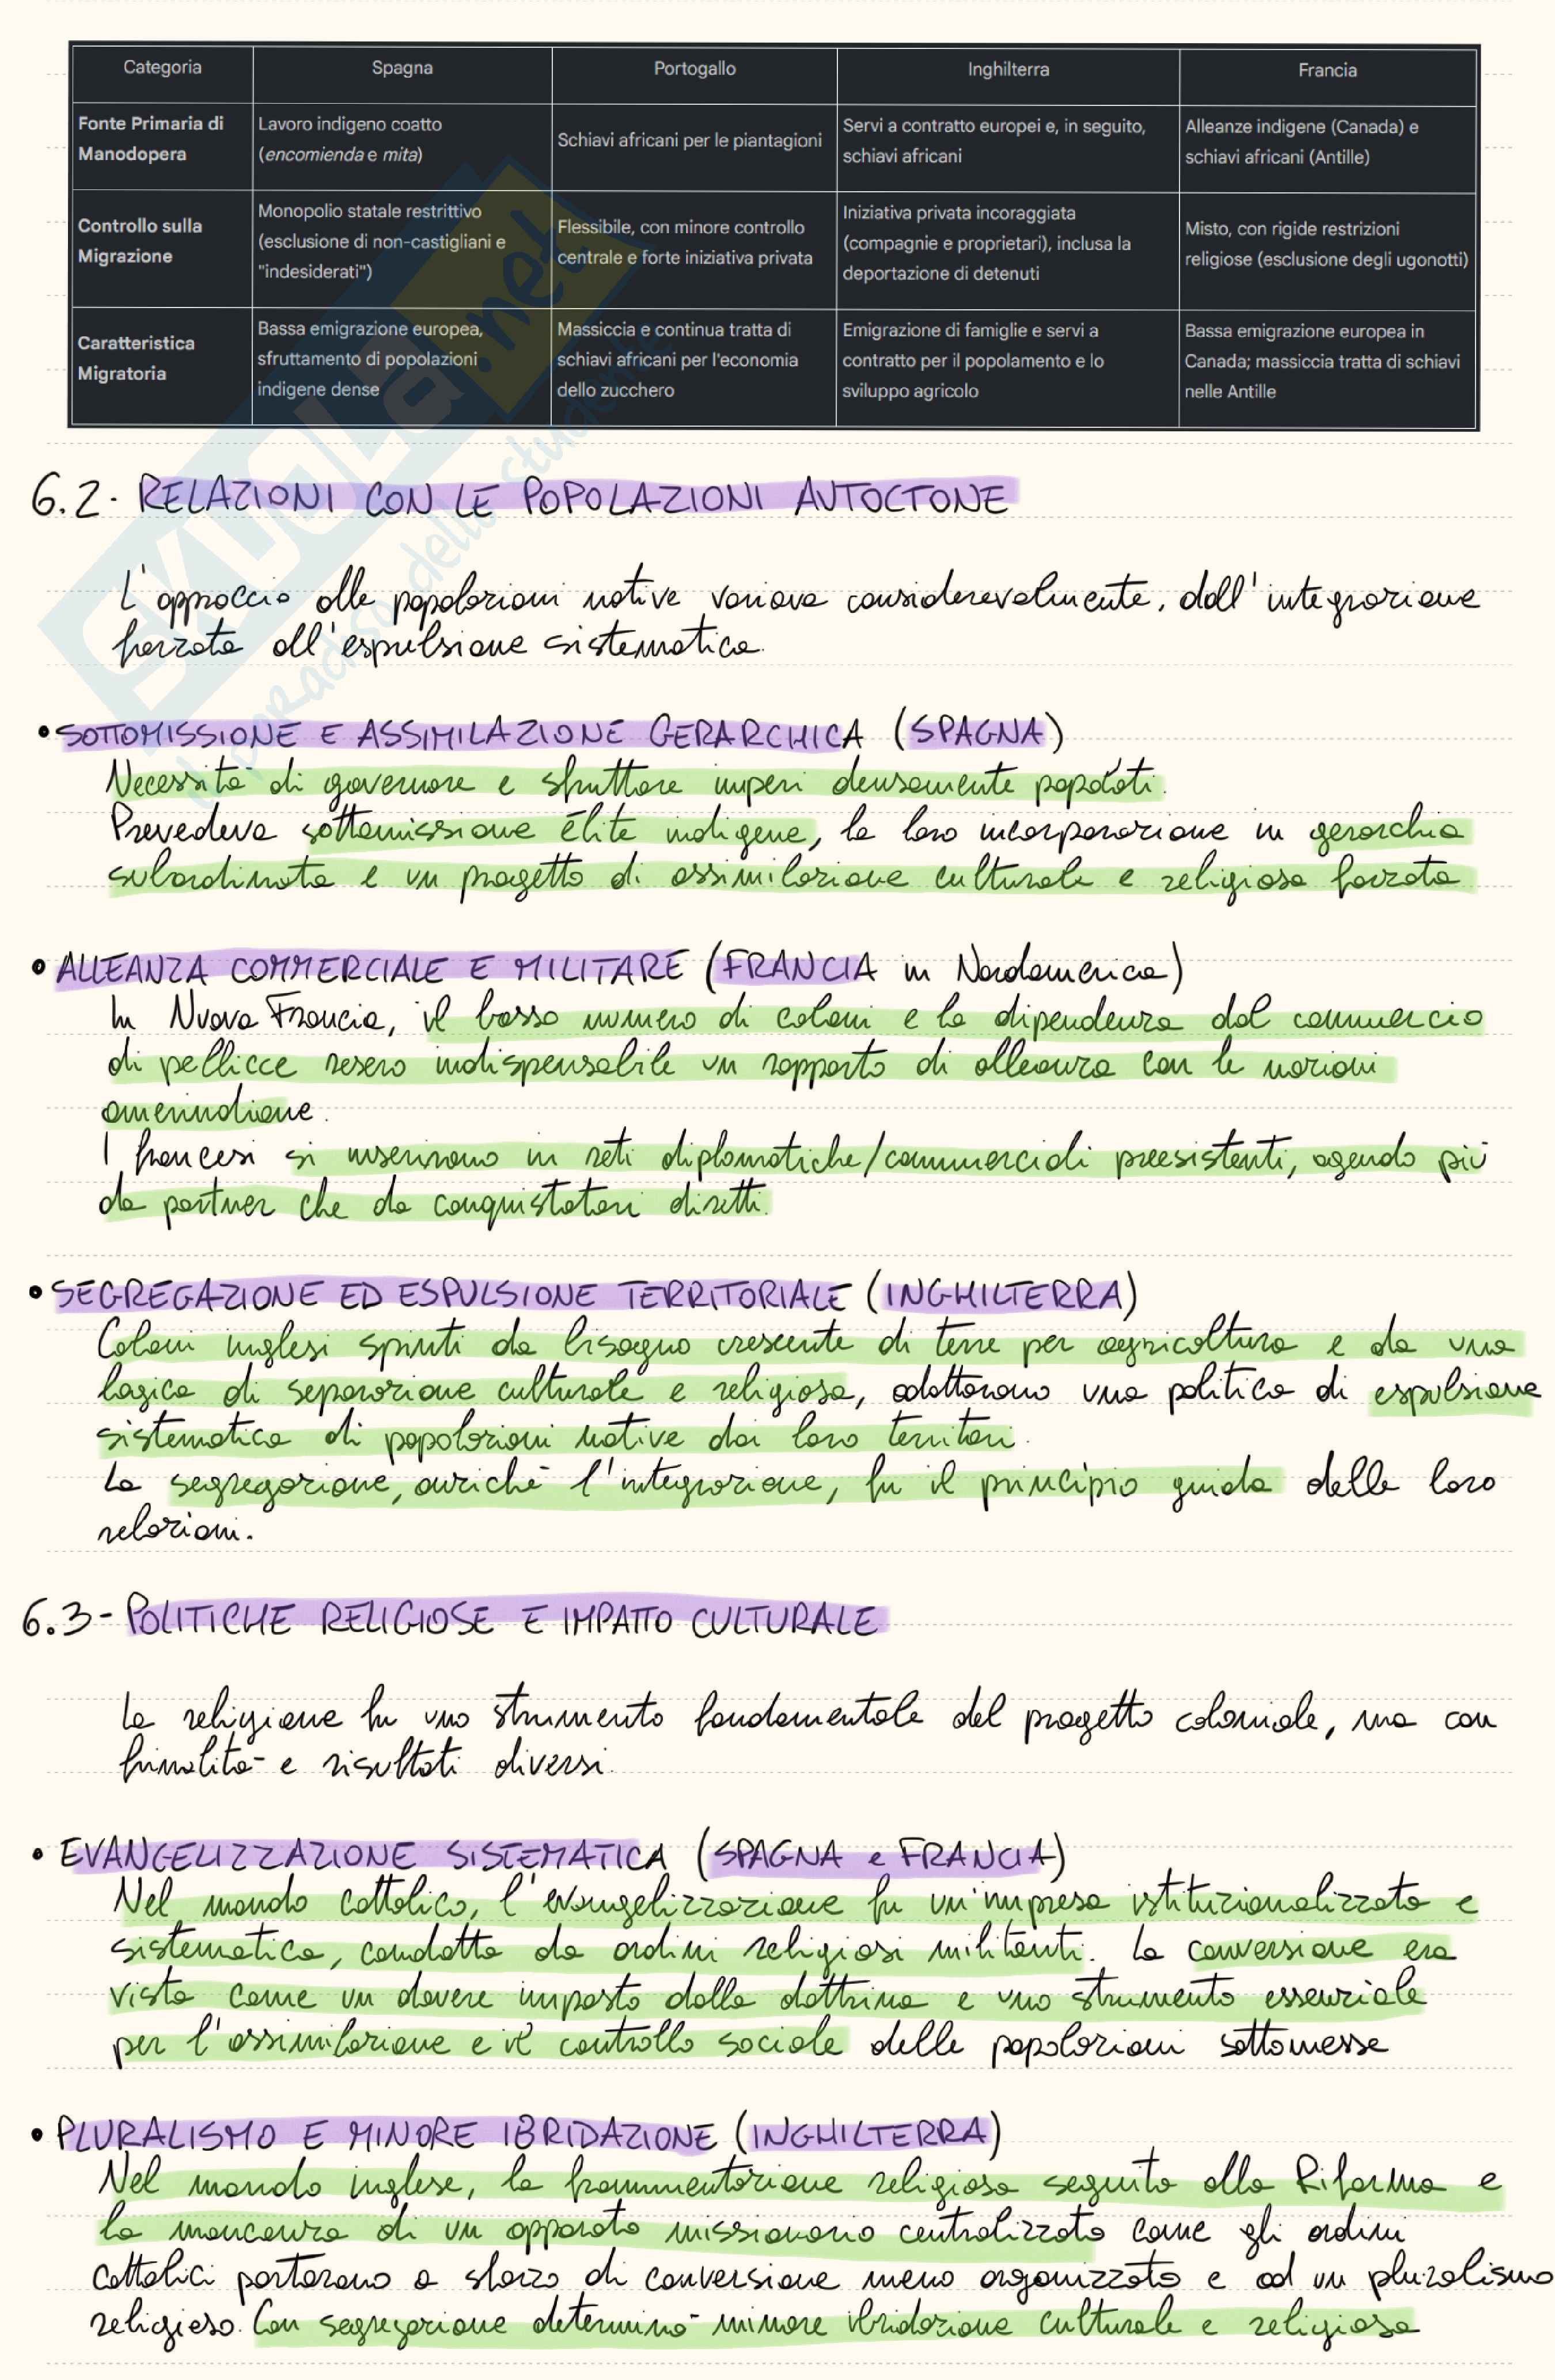 Categoria Spagna Portogallo Inghilterra Francia
Fonte Primaria di Manodopera
Lavoro indigeno coatto
(encomienda e mita)
Schiavi africani per le piantagioni
Servi a contratto europei e, in seguito,
schiavi africani
Alleanze indigene (Canada) e
schiavi africani (Antille)
Controllo sulla
Migrazione
Monopolio statale restrittivo
(esclusione di non-castigliani e
"indesiderati")
Flessibile, con minore controllo
centrale e forte iniziativa privata
Iniziativa privata incoraggiata
(compagnie e proprietari), inclusa la
deportazione di detenuti
Misto, con rigide restrizioni
religiose (esclusione degli ugonotti)
Caratteristica
Migratoria
Bassa emigrazione europea,
sfruttamento di popolazioni
indigene dense
Massiccia e continua tratta di
schiavi africani per l'economia
dello zucchero
Emigrazione di famiglie e servi a
contratto per il popolamento e lo
sviluppo agricolo
Bassa emigrazione europea in
Canada; massiccia tratta di schiavi
nelle Antille
SKUOLa.net
il paradiso dello studente
6.2- RELAZIONI CON LE POPOLAZIONI AUTOCTONE
L'approccio alle popolazioni native variava considerevolmente, dall'integrazione
forzata all'espulsione sistematica.
• SOTTOMISSIONE E ASSIMILAZIONE GERARCHICA (SPAGNA)
Necessità di governare e sfruttare imperi densamente popolati.
Prevedeva sottomissione élite indigene, la loro incorporazione in gerarchia
subordinata e un progetto di assimilazione culturale e religiosa forzata
• ALLEANZA COMMERCIALE E MILITARE (FRANCIA in Nordamerica)
In Nuova Francia, il basso numero di coloni e la dipendenza dal commercio
di pellicce resero indispensabile un rapporto di alleanza con le nazioni
amerindiane.
I francesi si inserirono in reti diplomatiche/commerciali preesistenti, agendo più
da partner che da conquistatori diretti.
• SEGREGAZIONE ED ESPULSIONE TERRITORIALE (INGHILTERRA)
Coloni inglesi spinti da bisogno crescente di terre per agricoltura e da una
logica di separazione culturale e religiosa, adottarono una politica di espulsione
sistematica di popolazioni native dai loro territori.
La segregazione, anziché l'integrazione, fu il principio guida delle loro
relazioni.
6.3- POLITICHE RELIGIOSE E IMPATTO CULTURALE
La religione fu uno strumento fondamentale del progetto coloniale, ma con
finalità e risultati diversi.
• EVANGELIZZAZIONE SISTEMATICA (SPAGNA e FRANCIA)
Nel mondo cattolico, l'evangelizzazione fu un'impresa istituzionalizzata e
sistematica, condotta da ordini religiosi militanti. La conversione era
vista come un dovere imposto dalla dottrina e uno strumento essenziale
per l'assimilazione e il controllo sociale delle popolazioni sottomesse
• PLURALISMO E MINORE IBRIDAZIONE (INGHILTERRA)
Nel mondo inglese, la frammentazione religiosa seguita alla Riforma e
la mancanza di un apparato missionario centralizzato come gli ordini
cattolici portarono a sforzo di conversione meno organizzato e ad un pluralismo
religioso. Con segregazione determinò minore ibridazione culturale e religiosa